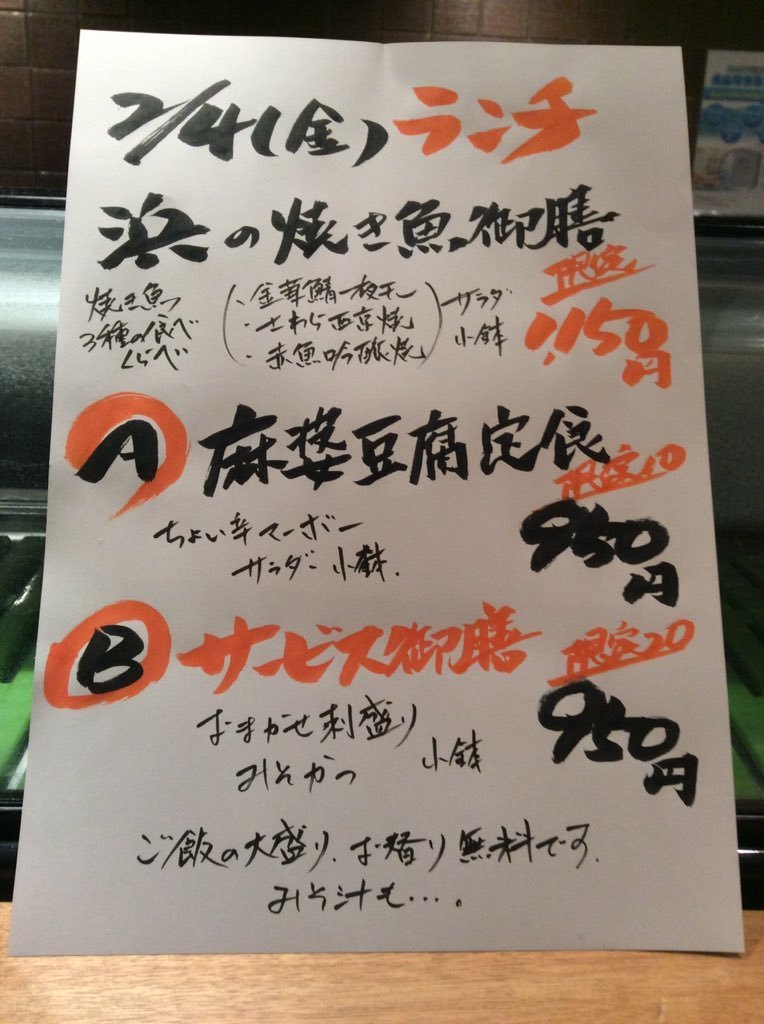 2/4(金)ランチ
浜の焼き魚御膳
限定
焼き魚
3種の食べ
くらべ
・金華鯖一夜干し
・さわら西京焼
・赤魚吟醸焼
サラダ
小鉢
1,150円
A 麻婆豆腐定食
限定10
ちょい辛マーボー
サラダ 小鉢.
950円
B サービス御膳
限定20
おまかせ刺盛り
みそかつ
小鉢
950円
ご飯の大盛り、お替り無料です.
みそ汁も…。